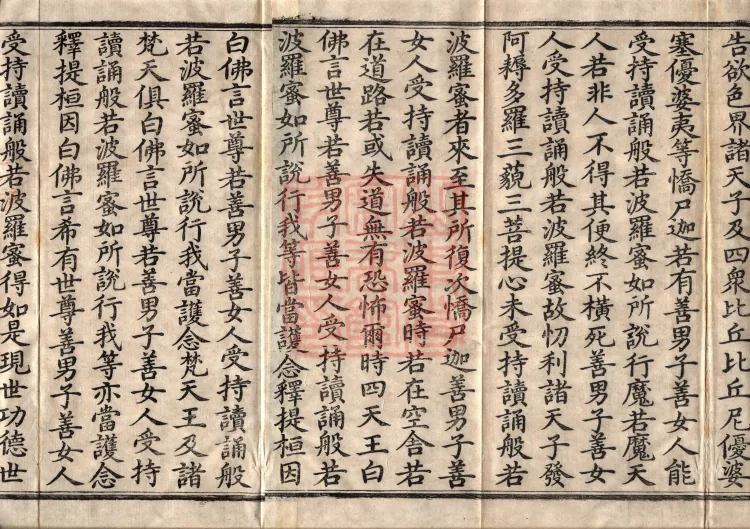 告欲色界諸天子及四衆比丘比丘尼優婆
塞優婆夷等憍尸迦若有善男子善女人能
受持讀誦般若波羅蜜如所說行魔若魔天
人若非人不得其便終不橫死善男子善女
人受持讀誦般若波羅蜜故忉利諸天子發
阿耨多羅三藐三菩提心未受持讀誦般若
波羅蜜者來至其所復次憍尸迦善男子善
女人受持讀誦般若波羅蜜時若在空舍若
在道路若或失道無有恐怖爾時四天王白
佛言世尊若善男子善女人受持讀誦般若
波羅蜜如所說行我等皆當護念釋提桓因
白佛言世尊若善男子善女人受持讀誦般
若波羅蜜如所說行我當護念梵天王及諸
梵天俱白佛言世尊若善男子善女人受持
讀誦般若波羅蜜如所說行我等亦當護念
釋提桓因白佛言希有世尊善男子善女人
受持讀誦般若波羅蜜得如是現世功德世